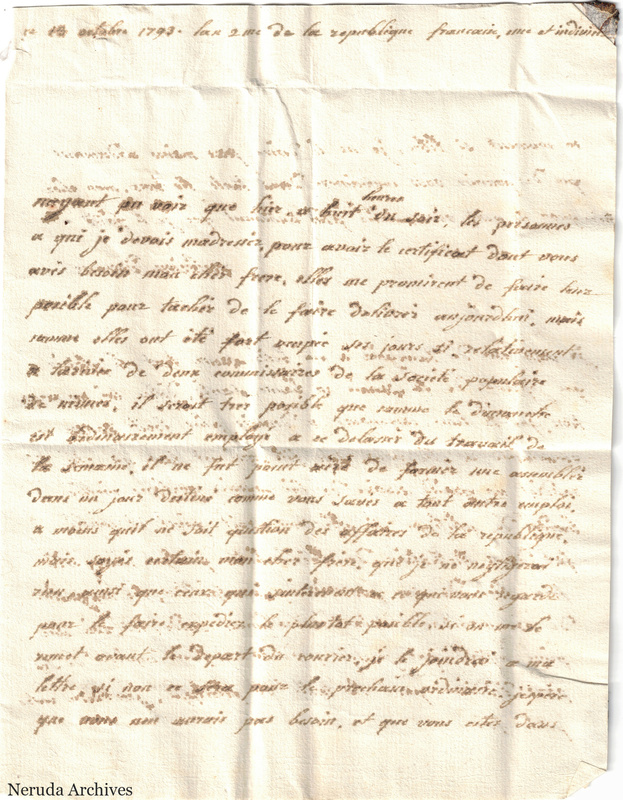 ce 13 octobre 1793. lan 2me de la republique francaise, une et indivisi
nayant pu voir que hier a huit heures du soir, les personnes
a qui je devois madresser pour avoir le certificat dont vous
avés besoin mon cher frere, elles me promirent de faire leur
possible pour tacher de le faire delivrer aujourdhui, mais
comme elles ont été fort ocupée ses jours si relativement
a larivée de deux commissaires de la societé populaire
de nimes, il seroit tres posible que comme le dimanche
est ordinairement employé a ce delasser du travail de
la semaine, il ne fut point aisé de former une assemblée
dans un jour destiné comme vous savés a tout autre emploi,
a moins quil ne soit question des affaires de la republique,
mais soyés certain mon cher frere, que je ne negligerai
rien ainsi que ceux qui sinteressent a ce qui vous regarde
pour le faire expédier le plustot posible, si on me le
remet avant le depart du courrier, je le joindrai a ma
lettre, si non ce sera pour le prochain ordinaire, jespere
que vous nen aurais pas besoin, et que vous estes dans
Neruda Archives